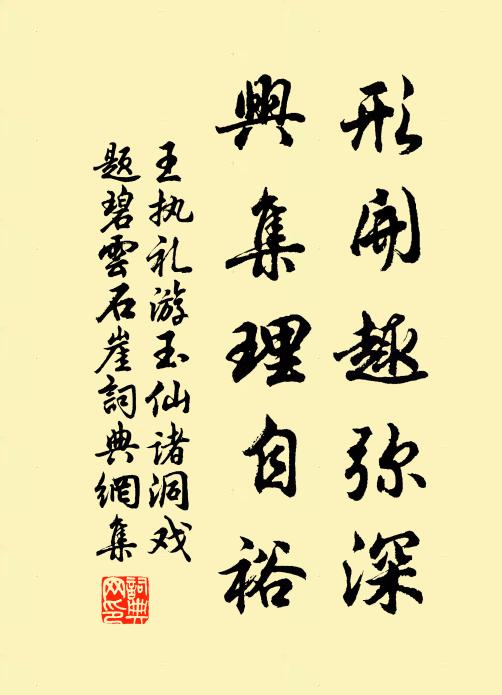 形開趣弥深
興集理自裕
王执礼游玉仙诸洞戏
题碧雲石崖詞典網集
詞典网印